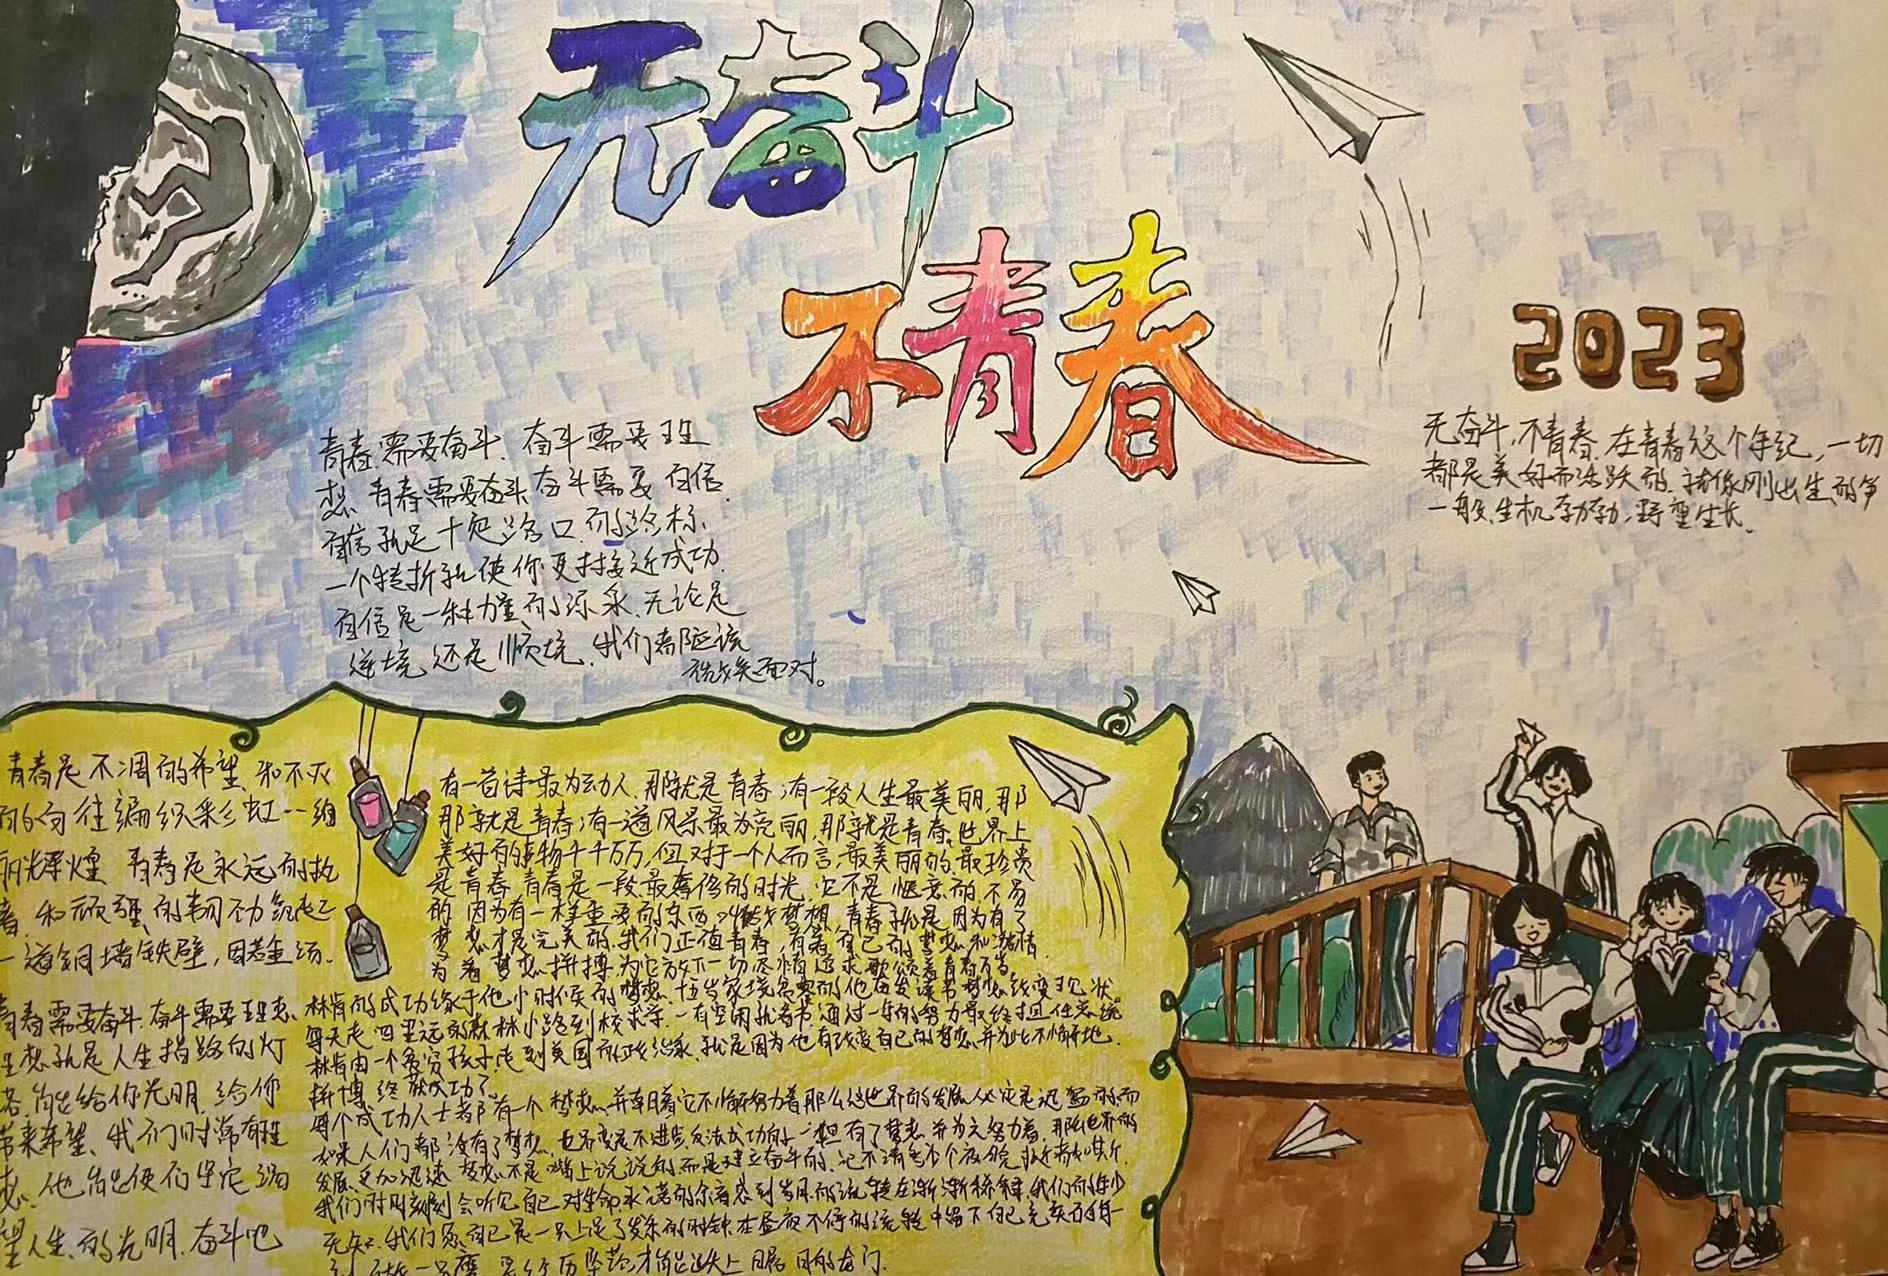 无奋斗
不青春
2023
无奋斗,不青春.在青春这个年纪,一切
都是美好而活跃的.就像刚出生的笋
一般,生机勃勃,野蛮生长.
青春需要奋斗.奋斗需要理
想.青春需要奋斗.奋斗需要自信.
自信就是十字路口的路标.
一个转折就使你更接近成功.
自信是一种力量的源泉.无论是
逆境还是顺境.我们都应该
面对。
青春是不凋的希望.和不灭
的向往编织彩虹
辉煌 青春是永远的执
着.和顽强的韧力筑起
一道铜墙铁壁,固若金汤.
有一首诗最为动人,那就是青春;有一段人生最美丽,那
那就是青春;有一道风景最为亮丽,那就是青春.世界上
美好的事物千千万万,但对于一个人而言,最美丽的最珍贵
是青春.青春是一段最奢侈的时光,它不是惬意的,不易
的.因为有一样重要的东西叫做梦想,青春就是因为有了
梦想才是完美的.我们正值青春,有着自己的梦想和激情.
为着梦想拼搏为它放下一切尽情追求歌颂着青春
青春需要奋斗.奋斗需要理想
理想就是人生指路的灯
能给你光明.给你
带来希望.我们时常有理
想.他能使你们坚定
人生的光明.奋斗吧
林肯的成功缘于他小时候的梦想.
每天走四里远的森林小路到校求学.一有空闲就看书通过一年的努力最终担任总统
林肯由一个贫穷孩子走到美国的政治家.就是因为他有改变自己的梦想并为此不懈地.
拼搏.终获成功了.
每个成功人士都有一个梦想.并朝着它不懈努力着那么这世界的发展必定是迅猛的而
如果人们都没有了梦想.世界变是不进步及法成功的一旦有了梦想并为之努力着.那么世界的
发展更加迅速 梦想不是嘴上说说的而是建立奋斗的.记不清多少个夜晚
我们时时刻刻会听见自己对生命承诺的
我们愿自己是一只上足了发条的时钟.在昼夜不停的流转中留下自己充实的每一
才能